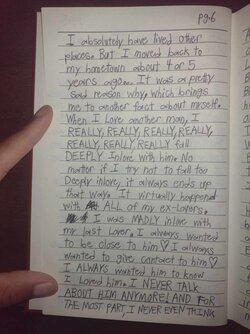 pg.6
I absolutely have lived other
places. But I moved back to
my hometown about 4 or 5
years ago... It was a pretty
sad reason why, which brings
me to another fact about myself.
When I Love another man, I
REALLY, REALLY, REALLY, REALLY,
REALLY, REALLY, REALLY fall
DEEPLY Inlove with him. No
matter if I try not to fall too
Deeply inlove, it always ends up
that way. It virtually happened
with ALL of my ex-Lovers.
I was MADLY inlove with
my last Lover. I always wanted
to be close to him♡ I always
wanted to give contact to him♡
I ALWAYS wanted him to know
I Loved him. I NEVER TALK
ABOUT HIM ANYMORE AND FOR
THE MOST PART I NEVER EVEN THINK